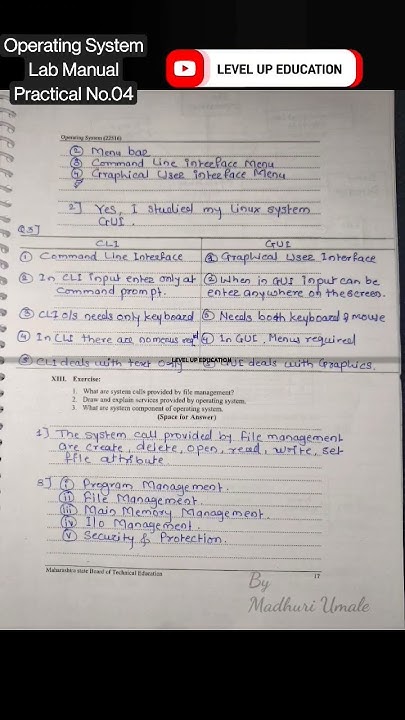 Operating System
Lab Manual
Practical No.04
LEVEL UP EDUCATION
Operating System (22516)
② Menu bar
③ Command Line interface Menu
④ Graphical User interface Menu
2] Yes, I studied my linux system
GUI.
Q3]
CLI
GUI
① Command Line Interface
① Graphical User Interface
② In CLI input enter only at
command prompt.
② When in GUI input can be
enter anywhere on the screen.
③ CLI o/s needs only keyboard
③ Needs both keyboard & mouse
④ In CLI there are no menus reqd
④ In GUI, Menus required
⑤ CLI deals with text only
LEVEL UP EDUCATION
⑤ GUI deals with Graphics.
XIII. Exercise:
1. What are system calls provided by file management?
2. Draw and explain services provided by operating system.
3. What are system component of operating system.
(Space for Answer)
1] The system call provided by file management
are create, delete, open, read, write, set
file attribute.
3] (i) Program Management.
(ii) File Management.
(iii) Main Memory Management.
(iv) I/o Management.
(v) Security & Protection.
Maharashtra state Board of Technical Education
17
By
Madhuri Umale